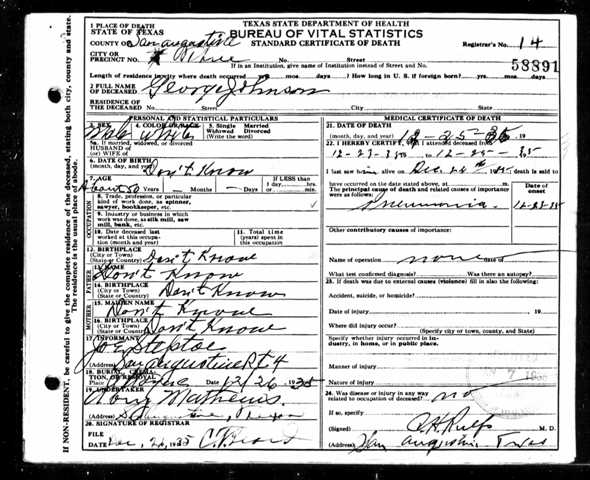 TEXAS STATE DEPARTMENT OF HEALTH
BUREAU OF VITAL STATISTICS
STANDARD CERTIFICATE OF DEATH
1 PLACE OF DEATH
STATE OF TEXAS
COUNTY OF San Augustine
Registrar's No. 14
CITY OR
PRECINCT NO. No. Street
If in an Institution, give name of Institution instead of Street and No.
58891
Length of residence in city where death occurred yrs. mos. days. How long in U. S. if foreign born? yrs. mos. days.
2 FULL NAME
OF DECEASED George Johnson
RESIDENCE OF
THE DECEASED No. Street City County State
NON-RESIDENT, be careful to give the complete residence of the deceased, stating both city, county and state.
The residence is the usual place of abode.
PERSONAL AND STATISTICAL PARTICULARS
3. SEX 4. COLOR OR RACE 5. Single Married
Widowed Divorced
(Write the word)
Male White
5a. If married, widowed, or divorced
HUSBAND OF
(or) WIFE of
6. DATE OF BIRTH
(month, day, and year) Don't Know
7. AGE If LESS than
About 50 Years Months Days 1 day, hrs.
or min.
OCCUPATION
8. Trade, profession, or particular
kind of work done, as spinner,
sawyer, bookkeeper, etc.
9. Industry or business in which
work was done, as silk mill, saw
mill, bank, etc.
10. Date deceased last
worked at this occupation
(month and year)
11. Total time
(years) spent in
this occupation
12. BIRTHPLACE
(City or Town)
(State or Country) Don't Know
FATHER
13. NAME
Don't Know
14. BIRTHPLACE
(City or Town)
(State or Country) Don't Know
MOTHER
15. MAIDEN NAME
Don't Know
16. BIRTHPLACE
(City or Town)
(State or Country) Don't Know
17. INFORMANT
Jo E Steptoe
(Address) San Augustine Rt 4
18. BURIAL, CREMATION, OR REMOVAL
Place Date 12/26 1935
19. UNDERTAKER
Mathews
(Address)
20. SIGNATURE OF REGISTRAR
FILE
DATE 1935
MEDICAL CERTIFICATE OF DEATH
21. DATE OF DEATH
(month, day, and year) 12-25-35, 19
22. I HEREBY CERTIFY, that I attended deceased from
12-23-35 to 12-25-35
I last saw him alive on Dec. 24th 1935 death is said to
have occurred on the date stated above, at m.
The principal cause of death and related causes of importance
were as follows:
Date of
onset
Pneumonia.
Other contributory causes of importance:
Name of operation none Date of
What test confirmed diagnosis? Was there an autopsy?
23. If death was due to external causes (violence) fill in also the following:
Accident, suicide, or homicide?
Date of injury 19
Where did injury occur?
(Specify city or town, county, and State)
Specify whether injury occurred in industry, in home, or in public place.
Manner of injury
Nature of injury
24. Was disease or injury in any way
related to occupation of deceased? no
If so, specify
(Signed) M. D.
(Address) San Augustine Texas